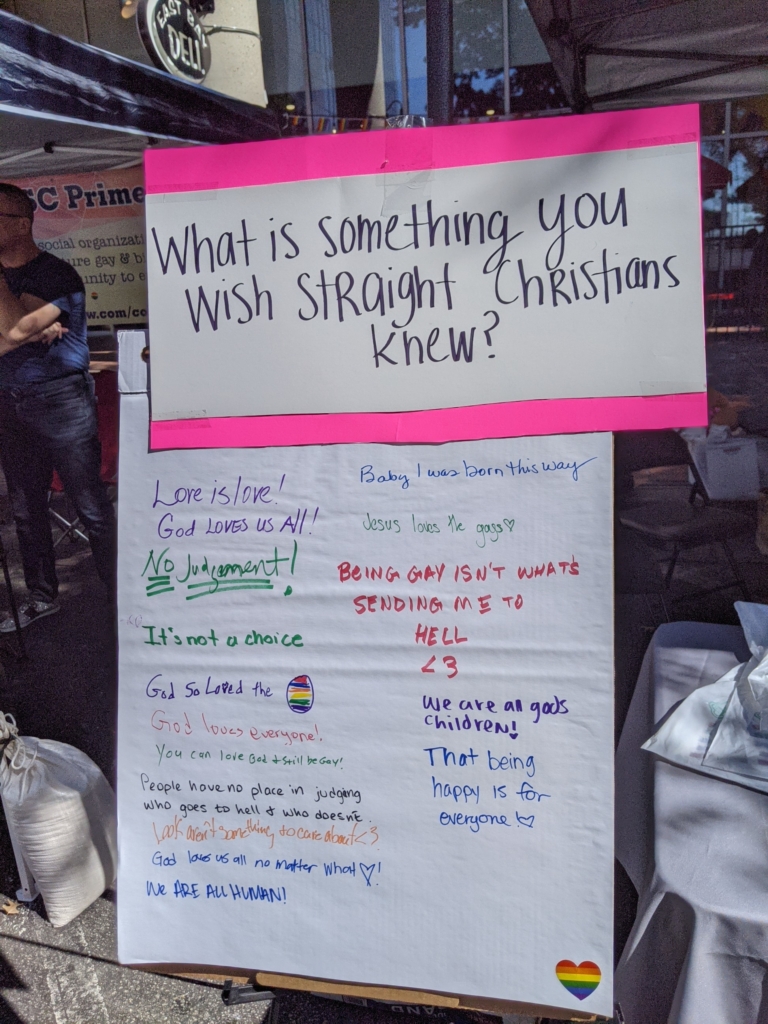 EAST BAY
DELI
SC Prime
social organizati
ure gay & bi
unity to e
w.com/co
What is something you
wish straight Christians
knew?
Love is love!
God Loves us All!
No Judgement!
It's not a choice
God So Loved the
God loves everyone!
You can love God & still be Gay!
People have no place in judging
who goes to hell & who doesn't.
Look aren't something to care about <3
God loves us all no matter what ♡!
We ARE ALL HUMAN!
Baby I was born this way
Jesus loves the gays ♡
BEING GAY ISN'T WHAT'S
SENDING ME TO
HELL
<3
We are all gods
children!
That being
happy is for
everyone ♡